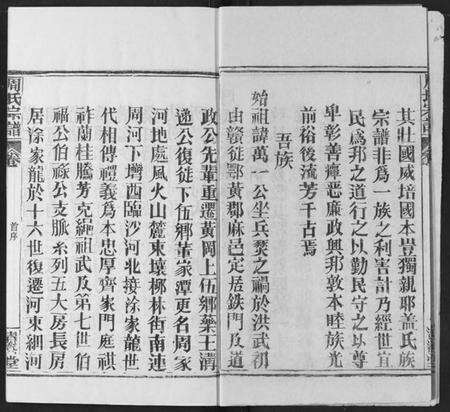 其壯國威培國本豈獨親耶蓋氏族
宗譜非爲一族之利害計乃經世宜
民爲邦之道行之以勤民守之以尊
卑彰善癉惡廉政興邦敦本睦族光
前裕後流芳千古焉
吾族
始祖諱萬一公坐兵燹之禍於洪武初
由贛徙鄂黃郡麻邑定居鉄門及道
政公先輩重遷黃岡上伍鄉藥王溝
遞公復徙下伍鄉董家潭更名周家
河地處風火山麓東壤梛林街南連
周河下墰西臨沙河北接涂家龍世
代相傳禮義爲本忠厚齊家門庭祺
祚蘭桂騰芳克繩祖武及第七世伯
福公伯祿公支脈系列五大房長房
居涂家龍於十六世復遷河東細河
周氏宗譜
卷
首序
堂